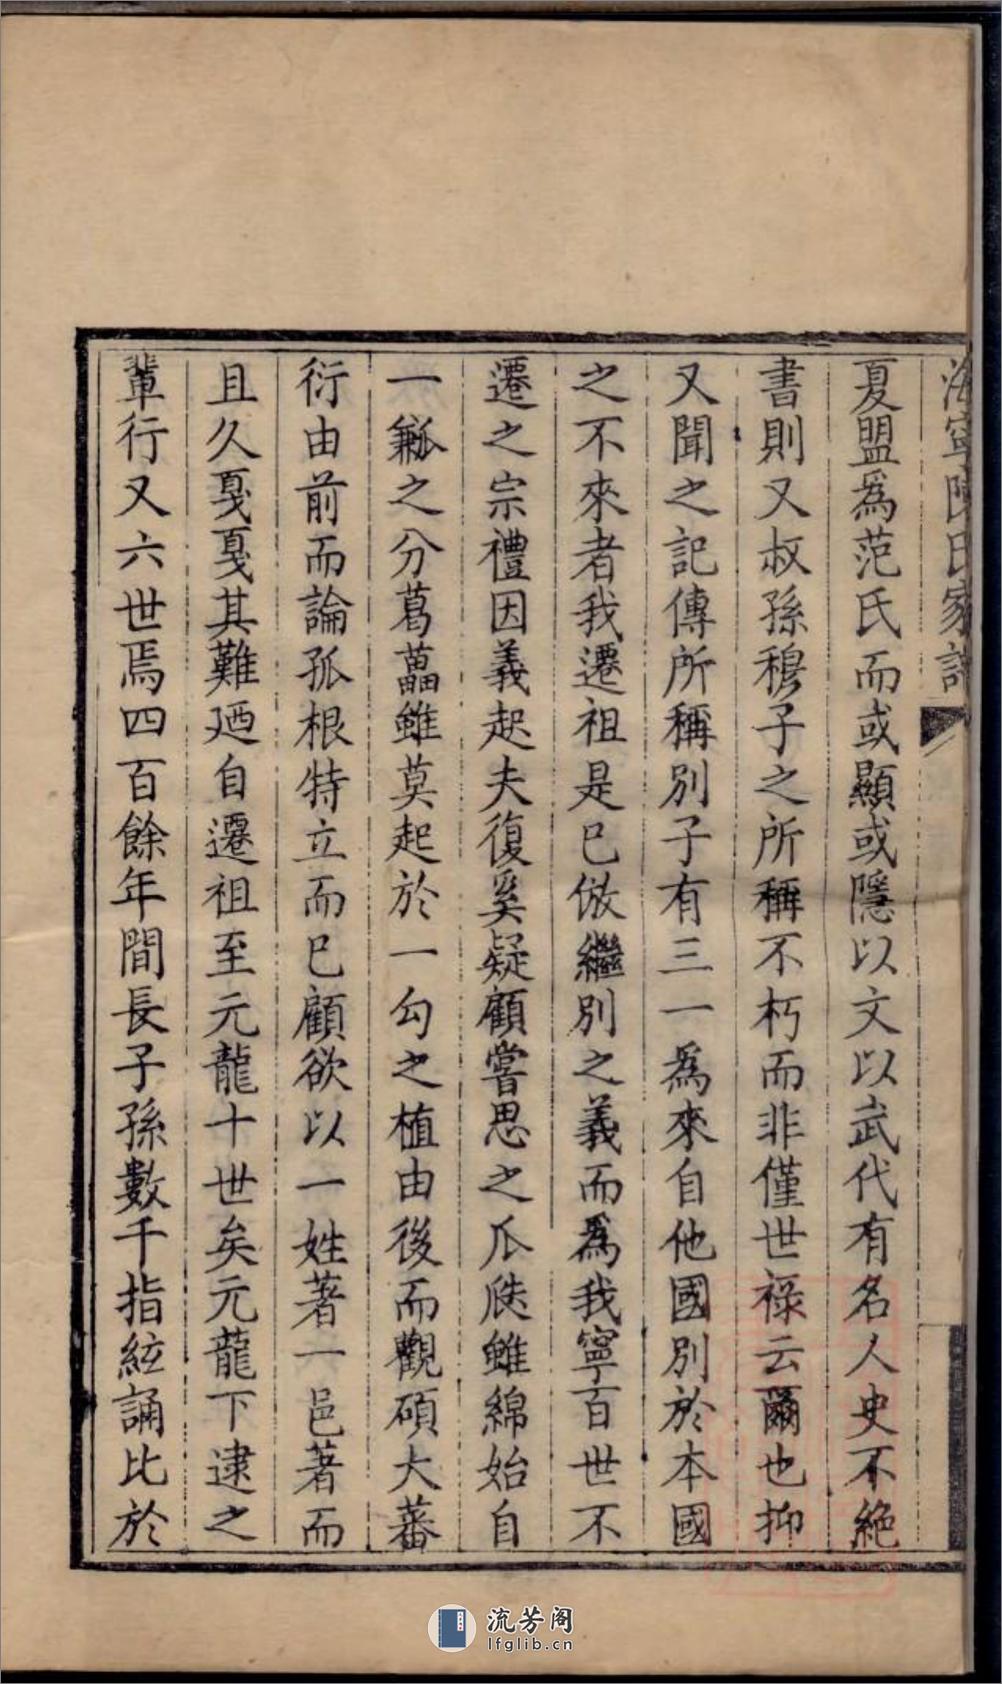 海寧陳氏家譜
夏盟爲范氏而或顯或隱以文以武代有名人史不絶
書則又叔孫穆子之所稱不朽而非僅世祿云爾也抑
又聞之記傳所稱別子有三一爲來自他國別於本國
之不來者我遷祖是已倣繼別之義而爲我寧百世不
遷之宗禮因義起夫復奚疑顧嘗思之瓜瓞雖綿始自
一瓢之分葛藟雖莫起於一勾之植由後而觀碩大蕃
衍由前而論孤根特立而已顧欲以一姓著一邑著而
且久戛戛其難廼自遷祖至元龍十世矣元龍下逮之
輩行又六世焉四百餘年間長子孫數千指絃誦比於
流芳阁
lfglib.cn